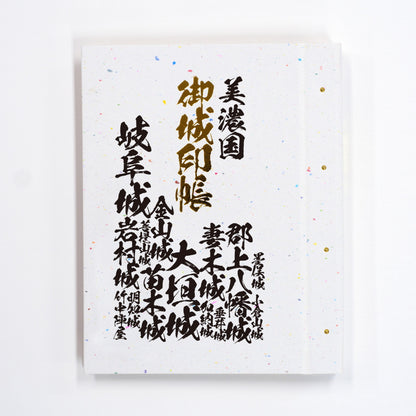 美濃国
御城印帳
墨俣城
小倉山城
郡上八幡城
垂井城
妻木城
加納城
大垣城
金山城
苗木城
菩提山城
岐阜城
岩村城
明知城
竹中陣屋